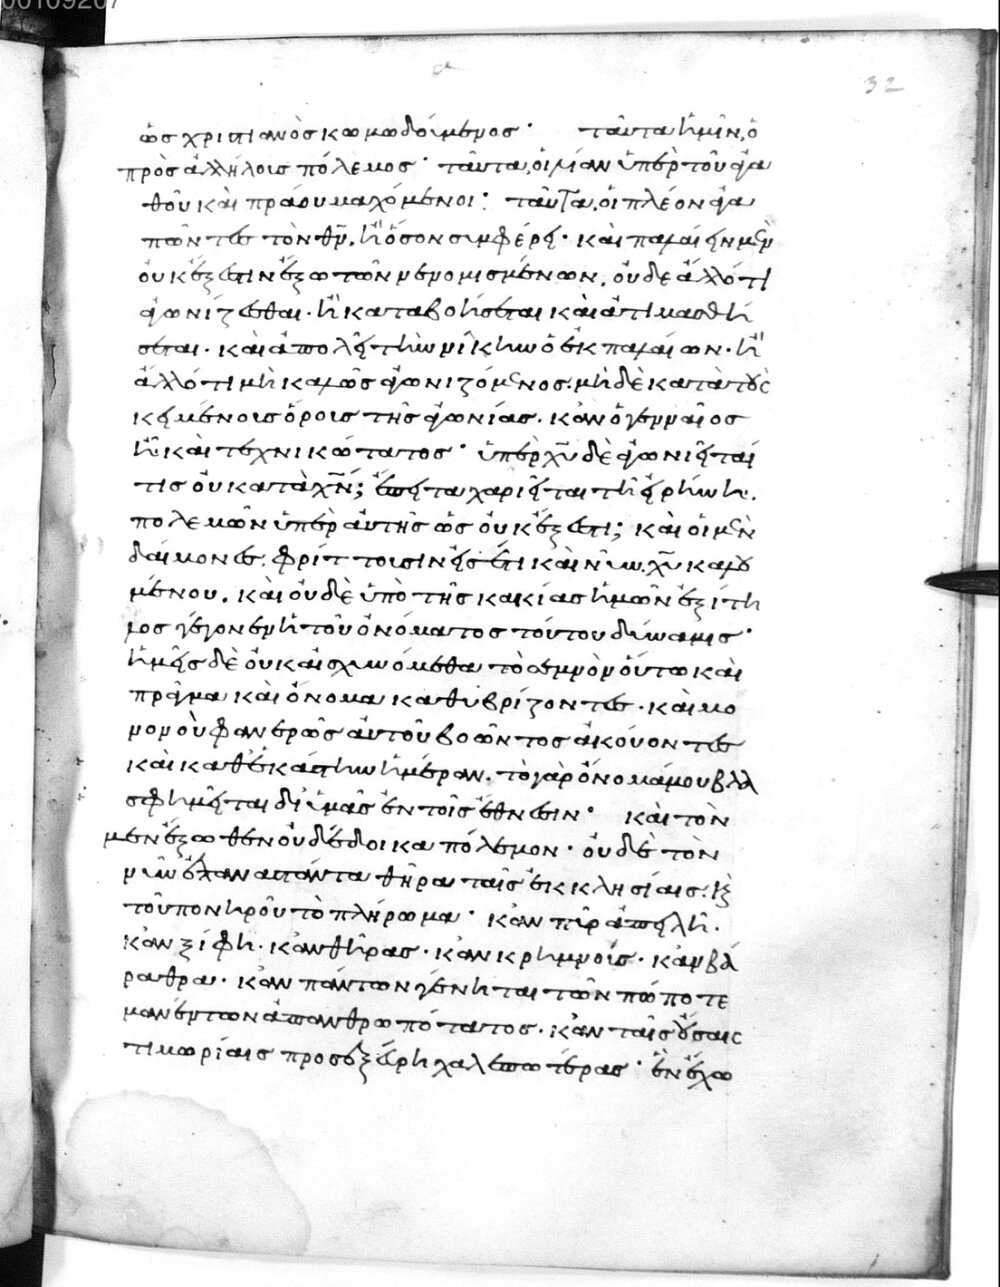 00109207
32
ὡσ χριστιανὸσ κωμωδούμενοσ· ταῦτα ἡμῖν, ὁ
πρὸσ ἀλλήλουσ πόλεμοσ· ταῦτα, οἱ λίαν ὑπὲρ τοῦ ἀγα
θοῦ καὶ πράου μαχόμενοι· ταῦτα, οἱ πλέον ἀγα
πῶντεσ τὸν θν, ἢ ὅσον συμφέρει· καὶ παλαίειν μὲν
οὐκ ἔξεστιν ἔξω τῶν νενομισμένων, οὐδε ἄλλό τι
ἀγωνίζεσθαι· ἢ καταβοήσεται καὶ ἀτιμασθή
σεται· καὶ ἀπολεῖ τὴν νίκην ὁ ἐκ παλαίων· ἢ
ἄλλό τι μὴ καλῶσ ἀγωνιζόμενοσ· μὴ δὲ κατὰ τοὺς
κειμένουσ ὅρουσ τῆσ ἀγωνίασ· κἂν ὁ γενναῖοσ
ἦ καὶ τεχνικώτατοσ· ὑπὲρ χυ δὲ ἀγωνιεῖται
τισ οὐ κατὰ χν; ἔπειτα χαριεῖται τῆ εἰρήνη.
πολεμῶν ὑπὲρ αὐτῆσ ὡσ οὐκ ἔξεστι; καὶ οἱ μὲν
δαίμονεσ, φρίττουσιν εἰσέτι καὶ νῦν, χυ καλου
μένου. καὶ οὐδὲ ὑπὸ τῆσ κακίασ ἡμῶν ἐξίτη
λοσ γέγονεν ἡ τοῦ ὀνόματοσ τούτου δύναμισ·
ἡμεῖσ δὲ οὐκ αἰσχυνόμεθα τὸ σεμνὸν οὕτω καὶ
πρᾶγμα καὶ ὄνομα καθυβρίζοντεσ· καὶ μο
νονοὺ φανερῶσ αὐτοῦ βοῶντοσ ἀκούοντεσ
καὶ καθἑκάστην ἡμέραν. τὸ γὰρ ὄνομά μου βλα
σφημεῖται δι ὑμᾶσ ἐν τοῖσ ἔθνεσιν· καὶ τὸν
μὲν ἔξωθεν οὐ δέδοικα πόλεμον· οὐδὲ τὸν
νῦν ἐπαναστάντα θῆρα ταῖσ ἐκκλησίαισ·
τοῦ πονηροῦ τὸ πλήρωμα· κἂν πῦρ ἀπειλῆ·
κἂν ξίφη· κἂν θῆρασ· κἂν κρημνούσ· κἂν βά
ραθρα· κἂν πάντων γένηται τῶν πώποτε
μανέντων ἀπανθρωπότατοσ· κἂν ταῖσ οὔσαις
τιμωρίαισ προσεξεύρη χαλεπωτέρασ· ἓν ἔχω